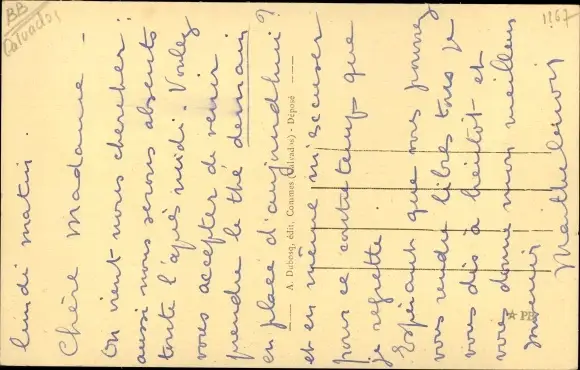 BB
Calvados
1267
lundi matin.
Chère Madame -
On vient nous chercher
aussi nous serons absents
toute l'après midi. Voulez
vous accepter de venir
prendre le thé demain
en place d'aujourd'hui ?
et en même m'excuser
pour ce contre temps que
je regrette
Espérant que vous pourrez
vous rendre libres tous je
vous dis à bientôt et
vous donne mon meilleur
souvenir
A. Dubosq, édit, Commes (Calvados) - Déposé